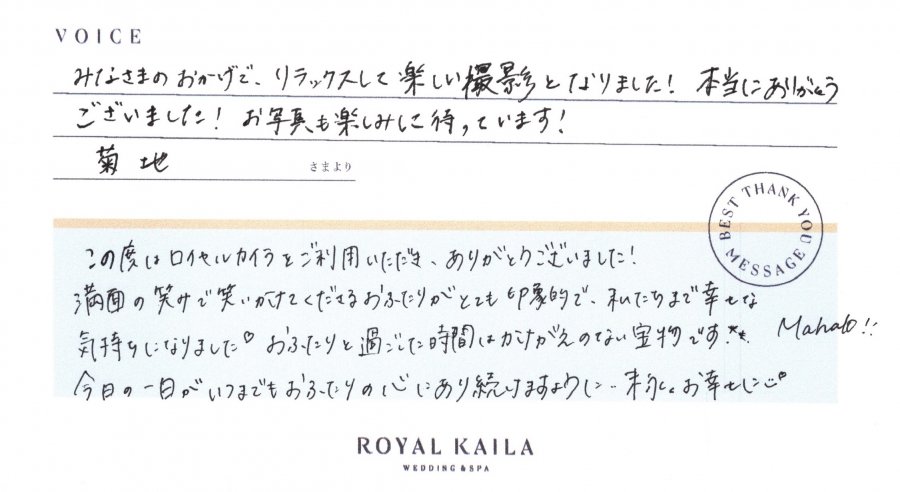 VOICE
みなさまのおかげで、リラックスして楽しい撮影となりました！ 本当にありがとう
ございました！ お写真も楽しみにして待っています！
菊地 さまより
BEST THANK YOU MESSAGE
この度はロイヤルカイラをご利用いただき、ありがとうございました！
満面の笑みで笑いかけてくださるおふたりがとても印象的で、私たちまで幸せな
気持ちになりました♡ おふたりと過ごした時間はかけがえのない宝物です！ Mahalo!!
今日の一日がいつまでもおふたりの心にあり続けますように… 末永くお幸せに
ROYAL KAILA
WEDDING & SPA